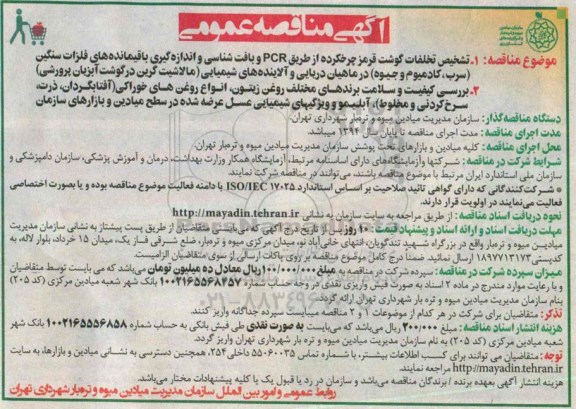 آگهی مناقصه عمومی
موضوع مناقصه: ۱. تشخیص تخلفات گوشت قرمز چرخ‌کرده از طریق PCR و بافت شناسی و اندازه‌گیری باقیمانده‌های فلزات سنگین
(سرب، کادمیوم و جیوه) در ماهیان دریایی و آلاینده‌های شیمیایی (مالاشیت گرین در گوشت آبزیان پرورشی)
۲. بررسی کیفیت و سلامت برندهای مختلف روغن زیتون، انواع روغن های خوراکی (آفتابگردان، ذرت،
سرخ کردنی و مخلوط) آبلیمو و ویژگیهای شیمیایی عسل عرضه شده در سطح میادین و بازارهای سازمان
دستگاه مناقصه‌گذار: سازمان مدیریت میادین میوه و تره‌بار شهرداری تهران.
مدت اجرای مناقصه: مدت اجرای مناقصه تا پایان سال ۱۳۹۴ میباشد
محل اجرای مناقصه: کلیه میادین و بازارهای تحت پوشش سازمان مدیریت میادین میوه و تره‌بار تهران.
شرایط شرکت در مناقصه: شرکتها و آزمایشگاه‌های دارای اساسنامه مرتبط، آزمایشگاه همکار وزارت بهداشت، درمان و آموزش پزشکی، سازمان دامپزشکی و
سازمان ملی استاندارد ایران مرتبط با موضوع مناقصه باشند، می‌توانند در مناقصه شرکت نمایند.
* شرکت‌کنندگانی که دارای گواهی تائید صلاحیت بر اساس استاندارد ISO/IEC ۱۷۰۲۵ با دامنه فعالیت موضوع مناقصه بوده و یا بصورت اختصاصی
فعالیت می‌نمایند در اولویت قرار دارند.
نحوه دریافت اسناد مناقصه: از طریق مراجعه به سایت سازمان به نشانی http://mayadin.tehran.ir
مهلت دریافت اسناد و ارائه اسناد و پیشنهاد قیمت: ۱۰ روز پس از تاریخ درج آگهی که می‌بایستی متقاضیان از طریق پست پیشتاز به نشانی سازمان مدیریت
میادین میوه و تره‌بار واقع در بزرگراه شهید تندگویان، انتهای خانی‌آباد نو، میدان مرکزی میوه و تره‌بار، ضلع شرقی فاز یک، میدان ۱۵ خرداد، بلوار لاله، به
کدپستی ۱۸۹۷۷۱۳۱۷۳ ارسال نمائید. ضمنا درج کامل موضوع مناقصه بر روی پاکات ارسالی از سوی متقاضی الزامیست.
میزان سپرده شرکت در مناقصه: سپرده شرکت در مناقصه به مبلغ ۱۰۰/۰۰۰/۰۰۰ ریال معادل ده میلیون تومان می‌باشد که می بایست توسط متقاضیان
و با رعایت موارد مندرج در ماده ۲ اسناد به صورت فیش واریزی نقدی در وجه حساب شماره ۱۰۰۲۱۶۵۵۶۸۴۵۷ بانک شهر شعبه میادین مرکزی (کد ۲۰۵)
بنام سازمان مدیریت میادین میوه و تره بار شهرداری تهران ارائه گردد.
تذکر: متقاضیان برای شرکت در هر کدام از موضوعات ۱ و ۲ مناقصه میبایست سپرده جداگانه واریز کنند.
هزینه انتشار اسناد مناقصه: مبلغ ۲۰۰/۰۰۰ ریال می‌باشد که می‌بایست به صورت نقدی طی فیش بانکی به حساب شماره ۱۰۰۲۱۶۵۵۵۶۸۵۸ بانک شهر
شعبه میادین مرکزی (کد ۲۰۵) به نام سازمان مدیریت میادین میوه و تره بار شهرداری تهران واریز گردد.
توجه: متقاضیان می توانند برای کسب اطلاعات بیشتر، با شماره تماس ۵۵۰۶۰۰۳۵ داخلی ۲۵۴، همچنین دسترسی به نشانی میادین و بازارها، به سایت
http://mayadin.tehran.ir مراجعه نمایند.
هزینه انتشار آگهی بعهده برنده / برندگان مناقصه می‌باشد و سازمان در رد یا قبول یک یا کلیه پیشنهادات مختار می‌باشد.
روابط عمومی و امور بین الملل سازمان مدیریت میادین میوه و تره‌بار شهرداری تهران